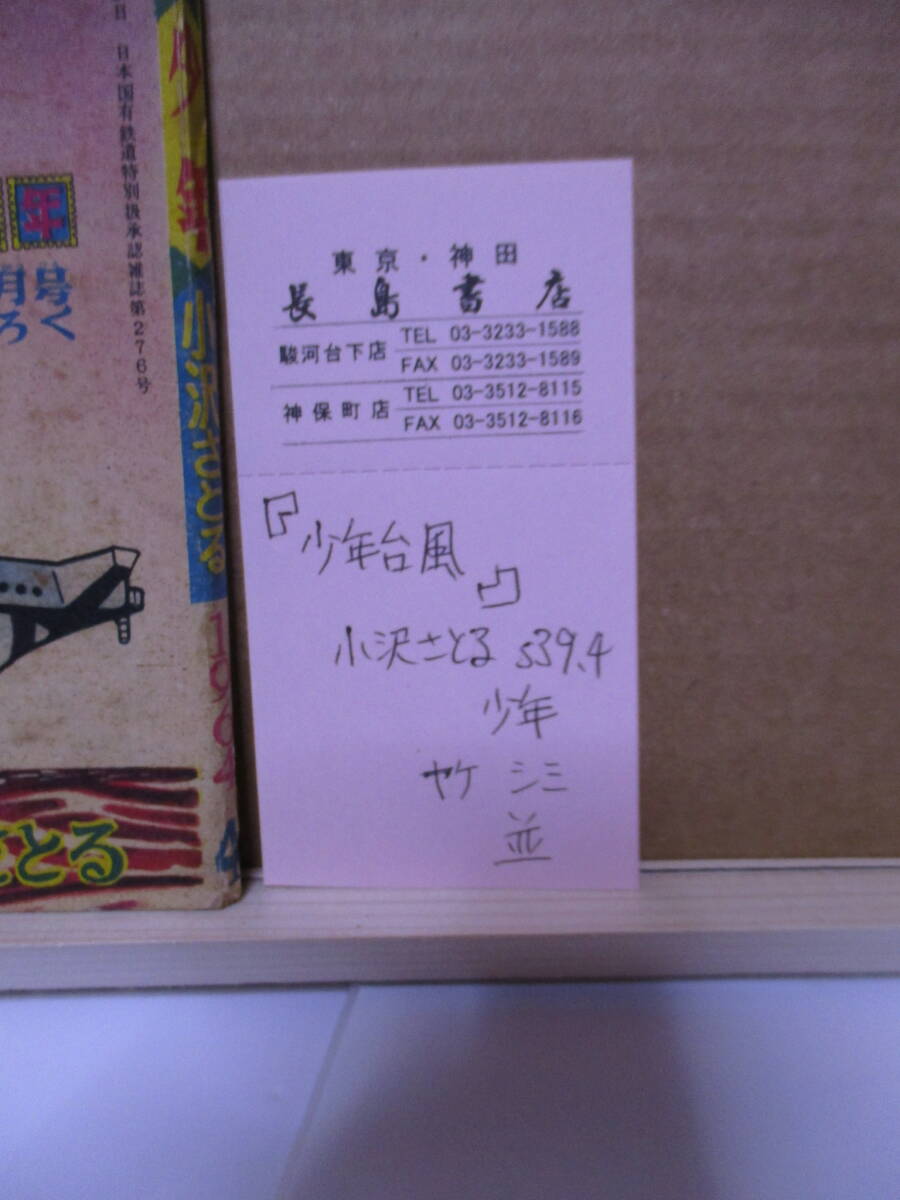 東京・神田
長島書店
駿河台下店 TEL 03-3233-1588
FAX 03-3233-1589
神保町店 TEL 03-3512-8115
FAX 03-3512-8116
『少年台風』
小沢さとる S39.4
少年
ヤケ シミ
並
日 日本国有鉄道特別扱承認雑誌第276号
年
月号
ろく
さとる
少年 小沢さとる 1964 4